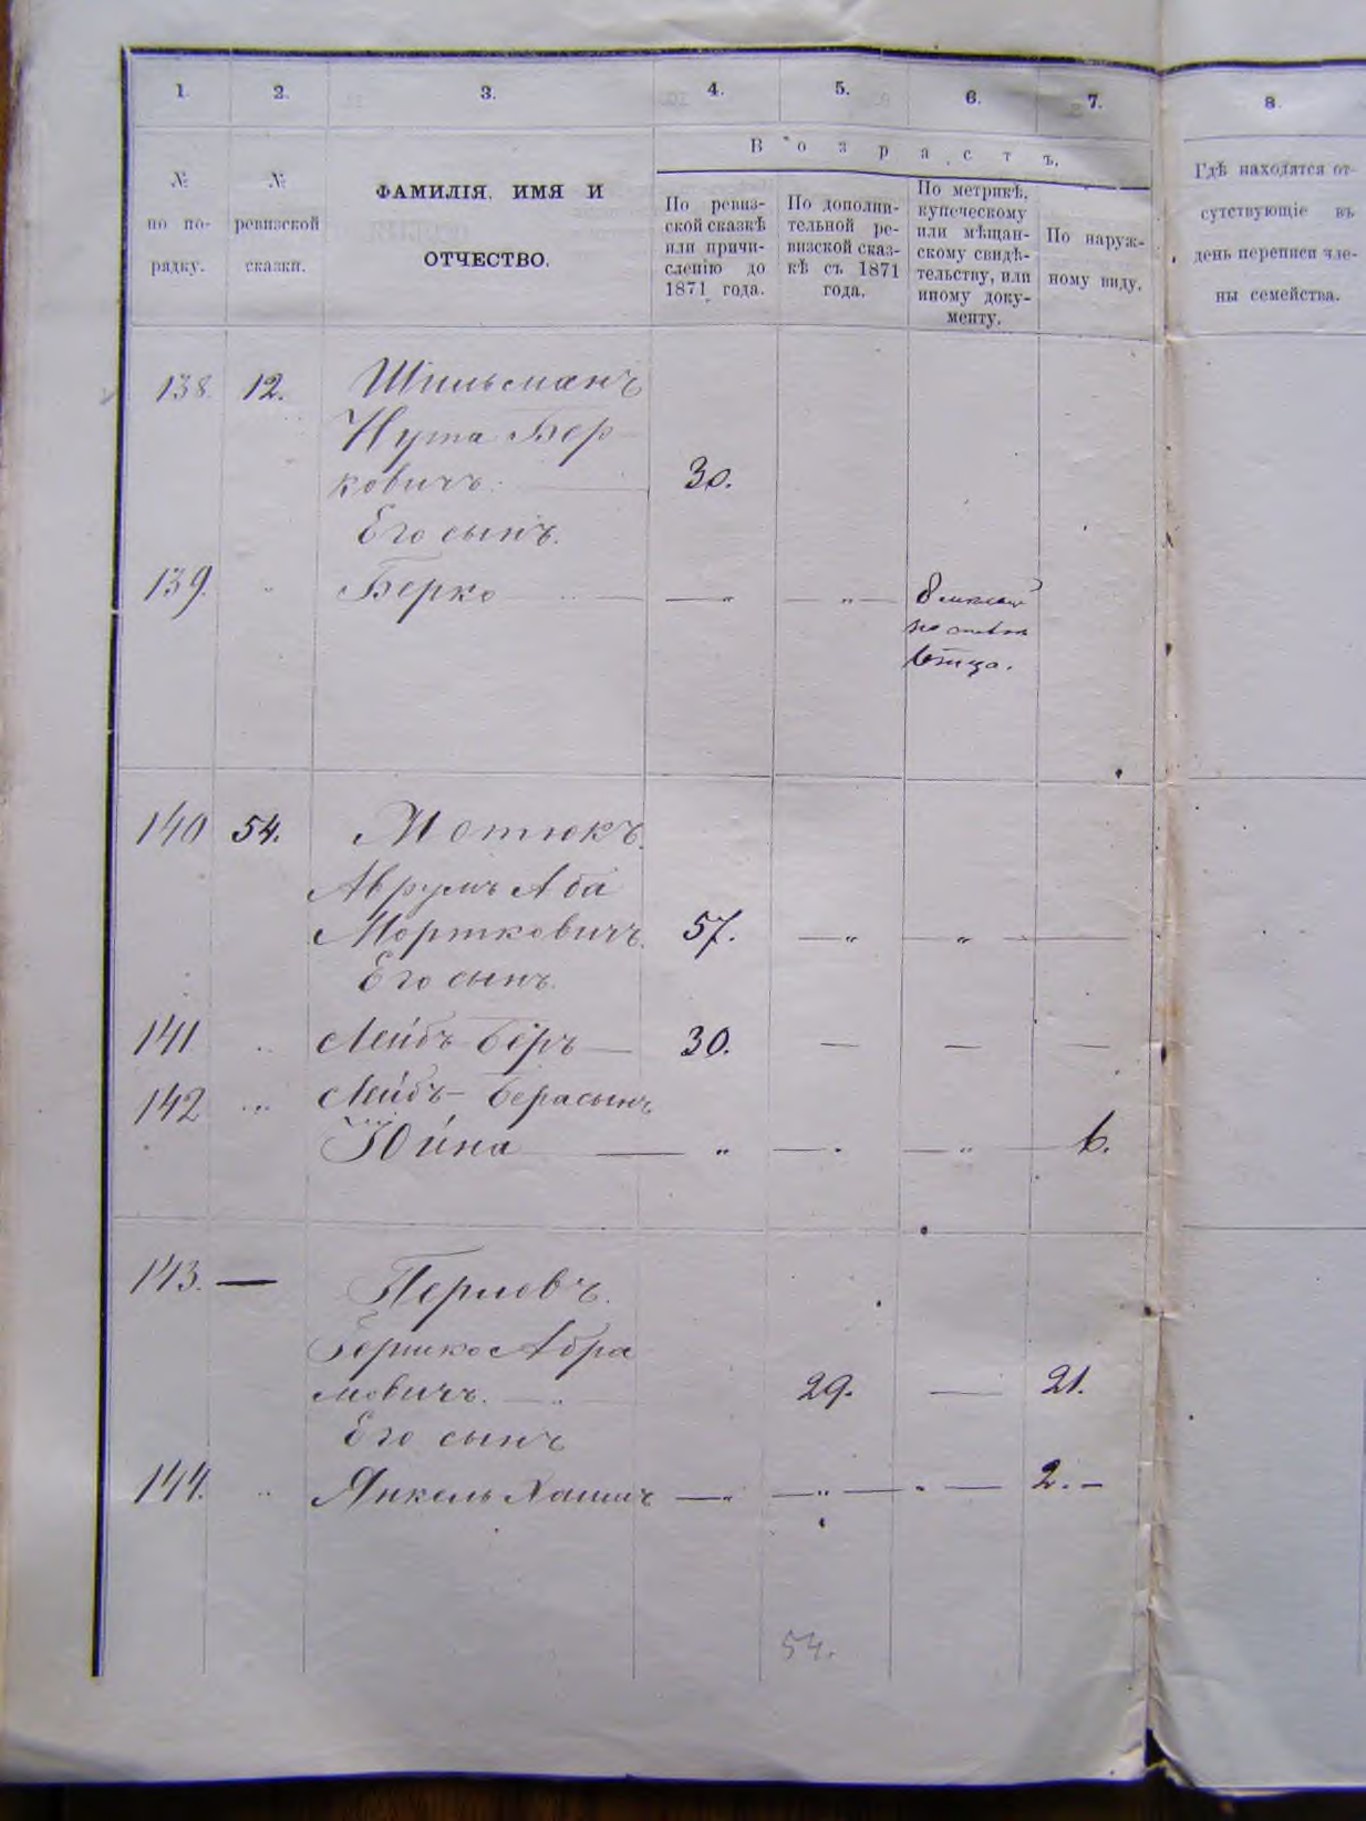 1. 2. 3. 4. 5. 6. 7. 8.
В о з р а с т ъ.
№
по по-
рядку.
№
ревизской
сказки.
ФАМИЛІЯ, ИМЯ И
ОТЧЕСТВО.
По ревиз-
ской сказкѣ
или причи-
сленію до
1871 года.
По дополни-
тельной ре-
визской сказ-
кѣ съ 1871
года.
По метрикѣ,
купеческому
или мѣщан-
скому свидѣ-
тельству, или
иному доку-
менту.
По наруж-
ному виду.
Гдѣ находятся от-
сутствующіе въ
день переписи чле-
ны семейства.
138. 12. Шильсманъ
Нута Бер
ковичъ. — 30.
Его сынъ.
139. " Берко — — " — " —
отца.
140 54. Мотюкъ.
Аврумъ Аба
Мортковичъ. 57. — " — " — —
Его сынъ.
141 " Лейбъ Беръ — 30. — — —
142 " Лейбъ-Бера сынъ
Юйна — " — " — " — 6.
143. — Перловъ.
Бершко Абра
мовичъ. — " 29. — 21.
Его сынъ
144. " Янкель Хаимъ — " — " — " — 2. —
54.